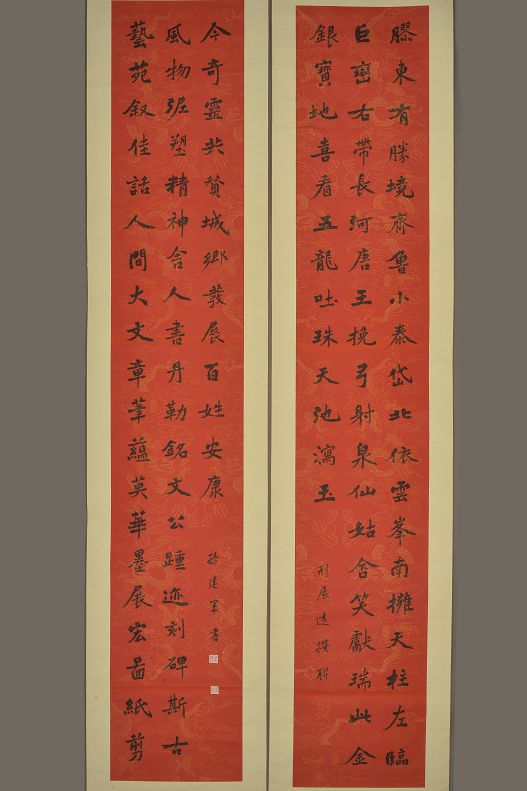 膠東有勝境齊魯小泰岱北依雲峯南擁天柱左臨
巨巒右帶長河唐王挽弓射泉仙姑含笑獻瑞此金
銀寶地喜看五龍吐珠天池瀉玉
展遠撰聯
藝苑叙佳話人間大文章筆蘊英華墨展宏圖紙剪
風物泥塑精神舍人書丹勒銘文公踵迹刻碑斯古
今奇靈共贊城鄉發展百姓安康
孫建軍書